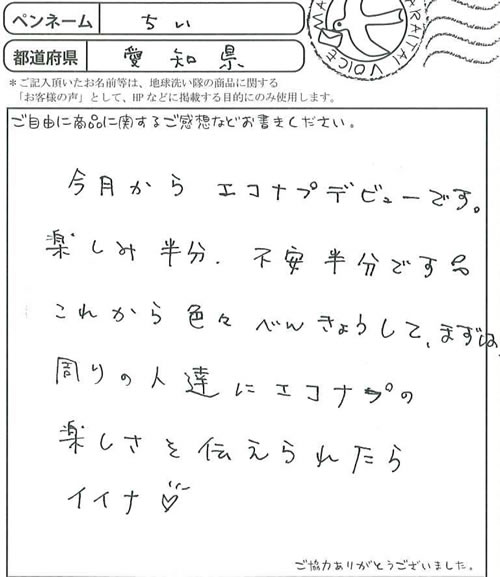 ペンネーム ちぃ
都道府県 愛知県
＊ご記入頂いたお名前等は、地球洗い隊の商品に関する
「お客様の声」として、HPなどに掲載する目的にのみ使用します。
ご自由に商品に関するご感想などお書きください。
今月から エコナプデビューです。
楽しみ半分、不安半分です
これから色々べんきょうして、まずは、
周りの人達にエコナプの
楽しさを伝えられたら
イイナ♡
ご協力ありがとうございました。